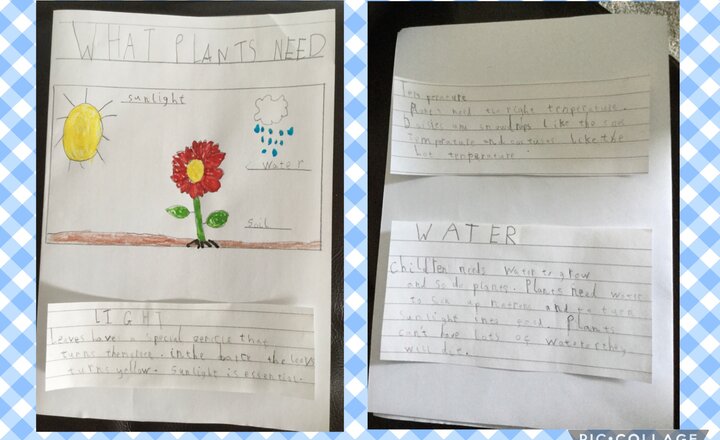 WHAT PLANTS NEED
sunlight
water
soil
LIGHT
Leaves have a special that
turns them . in the the leaf
turns yellow. Sunlight is essential.
Temperature
Plants need the right temperature.
and snowdrops like the
temprature and like the
hot temperature
WATER
Children needs water to grow
and so do plants. Plants need water
to up and to turn
sunlight into food. Plants
can't have lots of water or they
will die.
PIC•COLLAGE